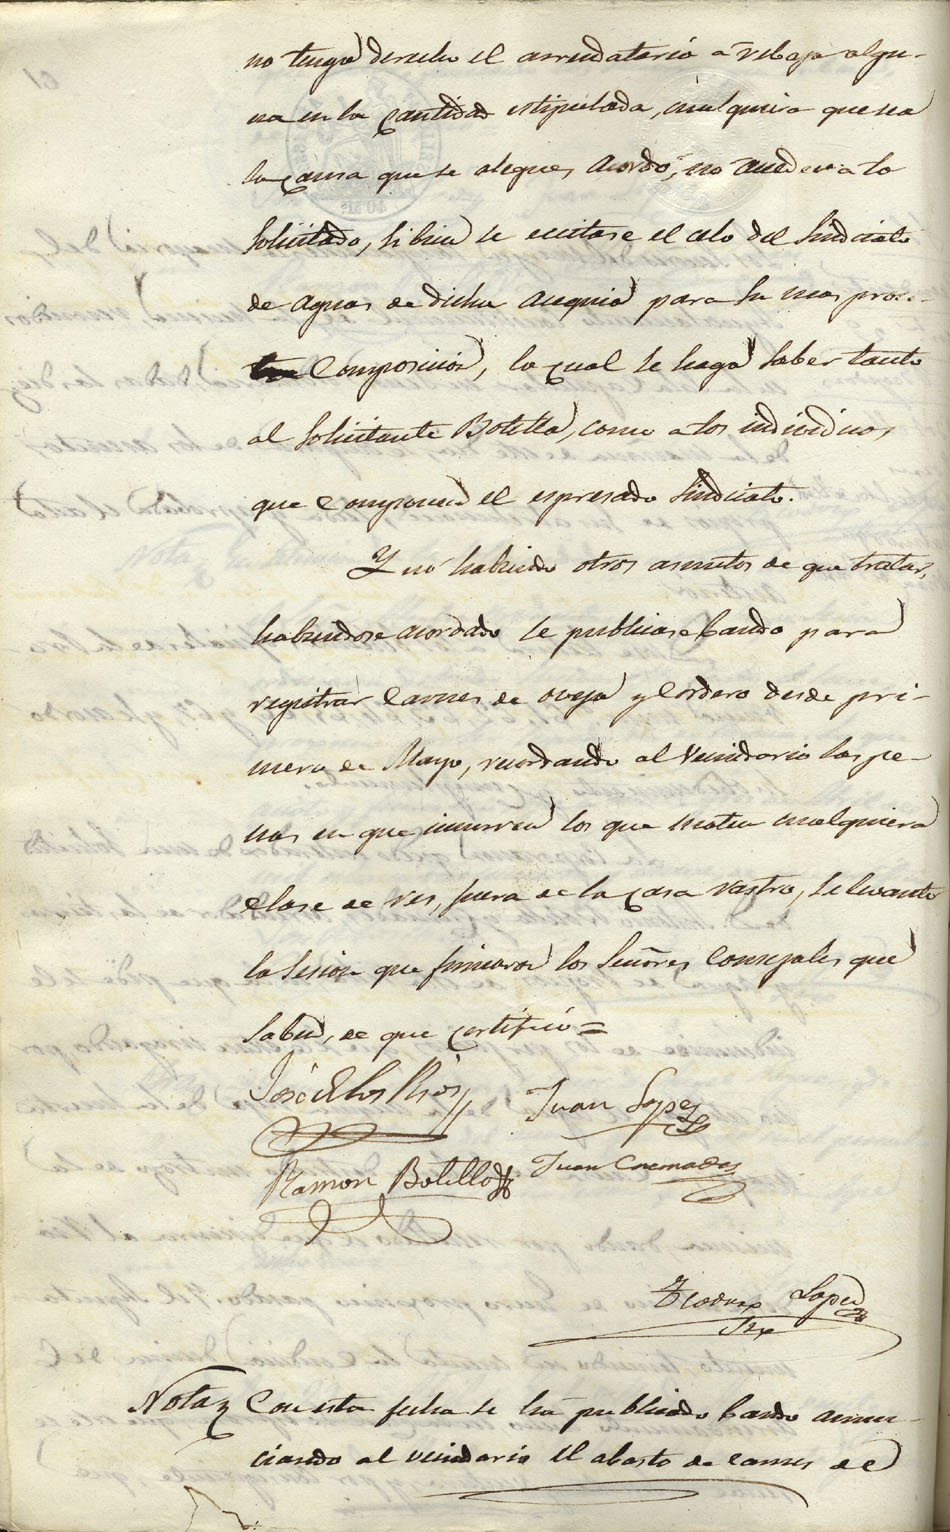 no tenga derecho el arrendatario a rebaja algu-
na en la cantidad estipulada, cualquiera que sea
la causa que se alegue, acordó, no acceder a lo
solicitado, si bien se ecsitase el celo del Sindicato
de aguas de dicha acequia para su mas pron-
ta composicion, lo cual se haga saber tanto
al solicitante Botella, como a los individuos
que componen el espresado Sindicato.
Y no habiendo otros asuntos de que tratar,
habiendose acordado se publicase bando para
registrar carnes de oveja y cordero desde pri-
mero de Mayo, recordando al vecindario las pe-
nas en que incurren los que maten cualquiera
clase de res, fuera de la casa rastro, se levantó
la sesion que firmaron los Señores Consejales que
saben, de que certifico =
José de los Rios
Juan Lopez
Ramon Botella
Juan Cremades
Lopez
Srio
Nota Con esta fecha se ha publicado bando anun-
ciando al vecindario el abasto de carnes de